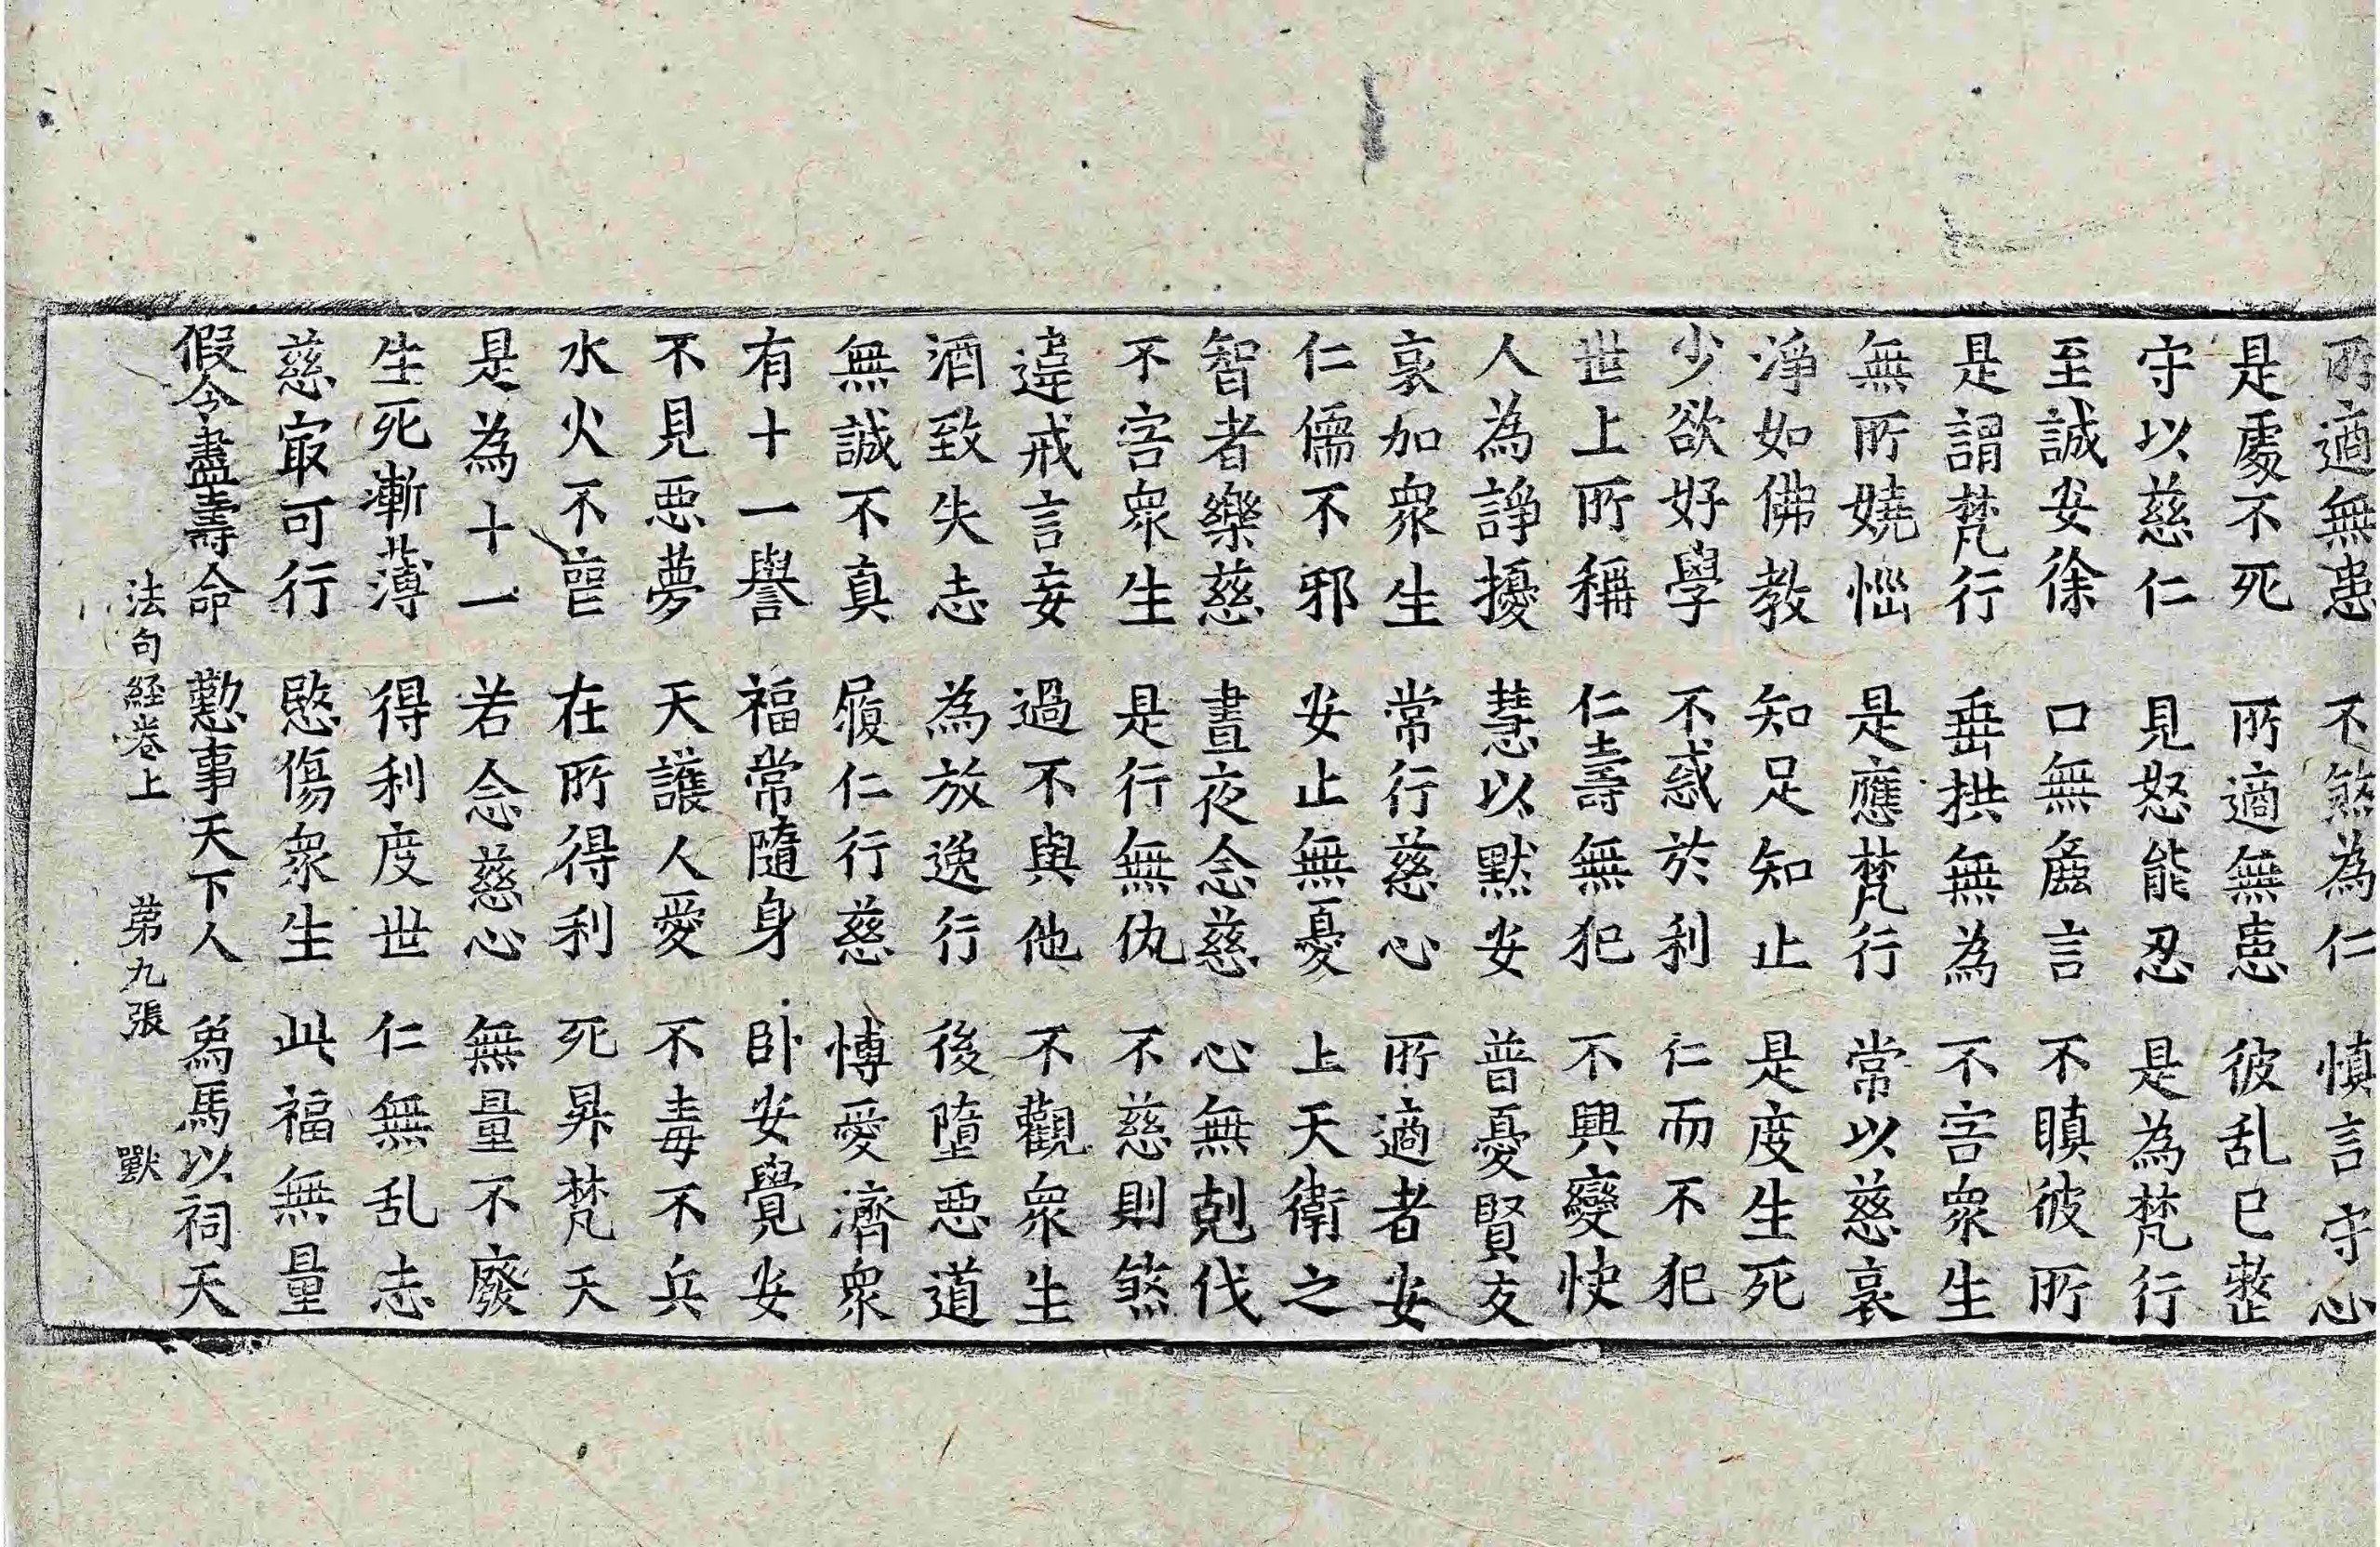 所適無患 不煞為仁 慎言守心
是處不死 所適無患 彼乱已整
守以慈仁 見怒能忍 是為梵行
至誠安徐 口無麁言 不瞋彼所
是謂梵行 垂拱無為 不害衆生
無所嬈惱 是應梵行 常以慈哀
淨如佛教 知足知止 是度生死
少欲好學 不惑於利 仁而不犯
世上所稱 仁壽無犯 不興變快
人為諍擾 慧以默安 普憂賢友
哀加衆生 常行慈心 所適者安
仁儒不邪 安止無憂 上天衛之
智者樂慈 晝夜念慈 心無剋伐
不害衆生 是行無仇 不慈則煞
違戒言妄 過不與他 不觀衆生
酒致失志 為放逸行 後墮惡道
無誠不真 履仁行慈 愽愛濟衆
有十一譽 福常隨身 卧安覺安
不見惡夢 天護人愛 不毒不兵
水火不喪 在所得利 死昇梵天
是為十一 若念慈心 無量不廢
生死漸薄 得利度世 仁無乱志
慈㝡可行 愍傷衆生 此福無量
假令盡壽命 懃事天下人 爲馬以祠天
法句経卷上 苐九張 獸